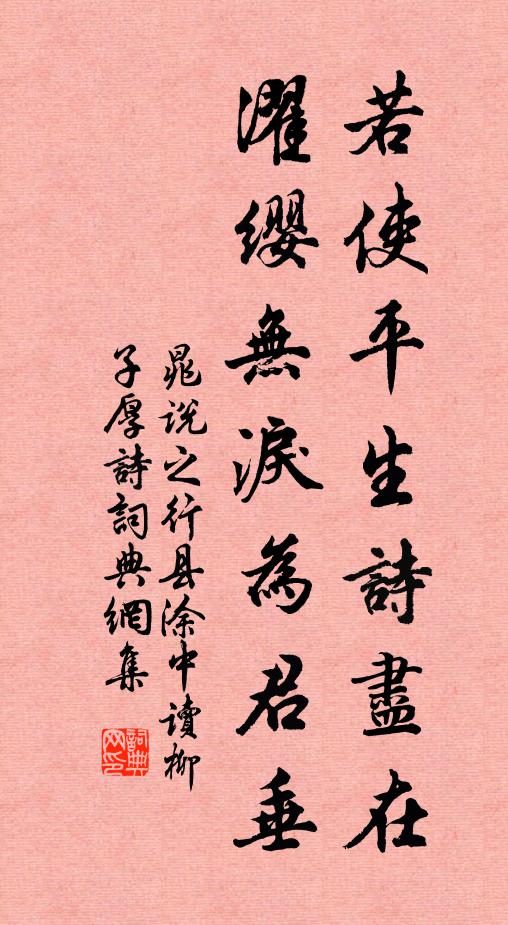 若使平生詩盡在
濯纓無淚為君垂
晁说之行县涂中读柳
子厚詩詞典網集
詞典网印